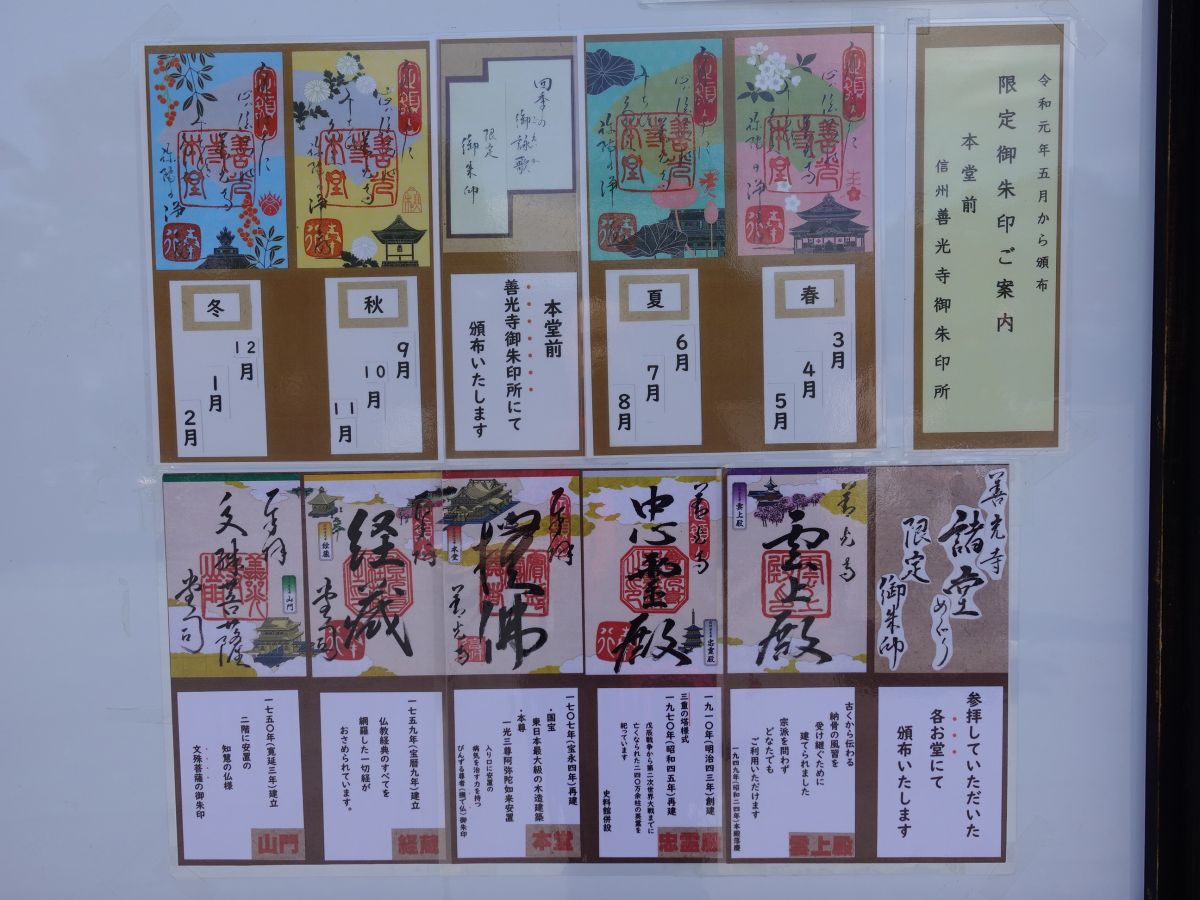 令和元年五月から頒布
限定御朱印ご案内
本堂前
信州善光寺御朱印所
春
3月
4月
5月
夏
6月
7月
8月
四季の
御詠歌
限定
御朱印
本堂前
善光寺御朱印所にて
頒布いたします
秋
9月
10月
11月
冬
12月
1月
2月
善光寺
諸堂
めぐり
限定
御朱印
参拝していただいた
各お堂にて
頒布いたします
善光寺
雲上殿
雲上殿
古くから伝わる
納骨の風習を
受け継ぐために
建てられました
宗派を問わず
どなたでも
ご利用いただけます
一九四九年(昭和二四年)本殿落慶
雲上殿
善光寺
忠霊殿
忠霊殿
一九一〇年(明治四三年)創建
一九七〇年(昭和四五年)再建
三重の塔様式
戊辰戦争から第二次世界大戦までに
亡くなられた二四〇万余柱の英霊を
祀っています
史料館併設
忠霊殿
奉拝
撫佛
善光寺
本堂
一七〇七年(宝永四年)再建
・国宝
東日本最大級の木造建築
・本尊
一光三尊阿弥陀如来安置
入り口に安置の
病気を治す力を持つ
びんずる尊者(撫で仏)御朱印
本堂
奉拝
経蔵
堂司
経蔵
一七五九年(宝暦九年)建立
仏教経典のすべてを
網羅した一切経が
おさめられています。
経蔵
奉拝
文殊菩薩
堂司
山門
一七五〇年(寛延三年)建立
二階に安置の
知慧の仏様
文殊菩薩の御朱印
山門